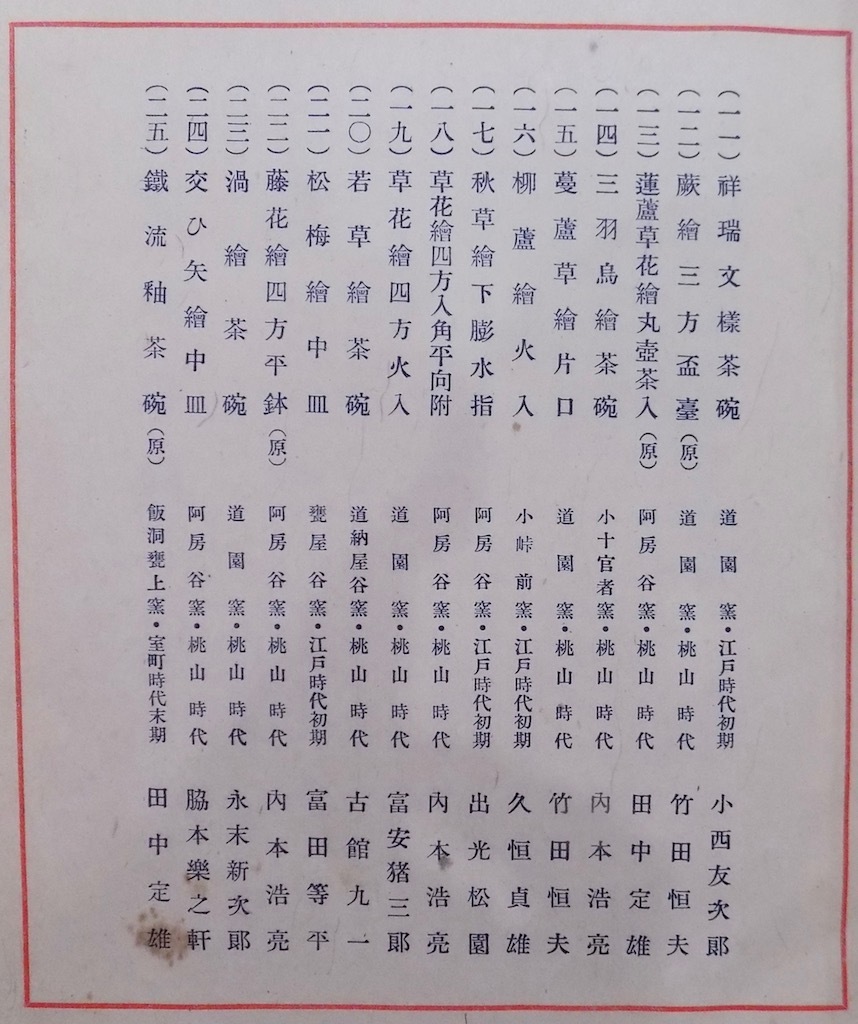 (一一)祥瑞文樣茶碗 道園窯・江戸時代初期 小西友次郎
(一二)蕨繪三方盃臺(原) 道園窯・桃山時代 竹田恒夫
(一三)蓮蘆草花繪丸壺茶入(原) 阿房谷窯・桃山時代 田中定雄
(一四)三羽烏繪茶碗 小十官者窯・桃山時代 內本浩亮
(一五)蔓蘆草繪片口 道園窯・桃山時代 竹田恒夫
(一六)柳蘆繪火入 小峠前窯・江戸時代初期 久恒貞雄
(一七)秋草繪下膨水指 阿房谷窯・江戸時代初期 出光松園
(一八)草花繪四方入角平向附 阿房谷窯・桃山時代 內本浩亮
(一九)草花繪四方火入 道園窯・桃山時代 富安猪三郞
(二〇)若草繪茶碗 道納屋谷窯・桃山時代 古館九一
(二一)松梅繪中皿 甕屋谷窯・江戸時代初期 富田等平
(二二)藤花繪四方平鉢(原) 阿房谷窯・桃山時代 內本浩亮
(二三)渦繪茶碗 道園窯・桃山時代 永末新次郞
(二四)交ひ矢繪中皿 阿房谷窯・桃山時代 脇本樂之軒
(二五)鐵流釉茶碗(原) 飯洞甕上窯・室町時代末期 田中定雄